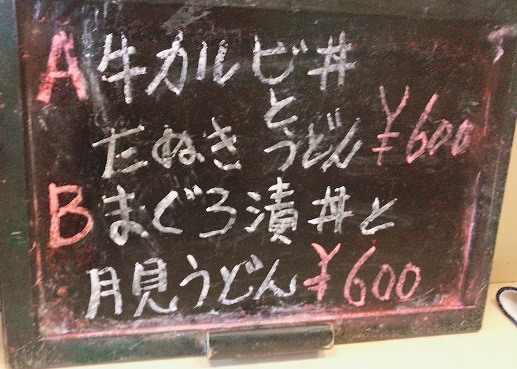 A 牛カルビ丼
と
たぬきうどん ¥600
B まぐろ漬丼と
月見うどん ¥600